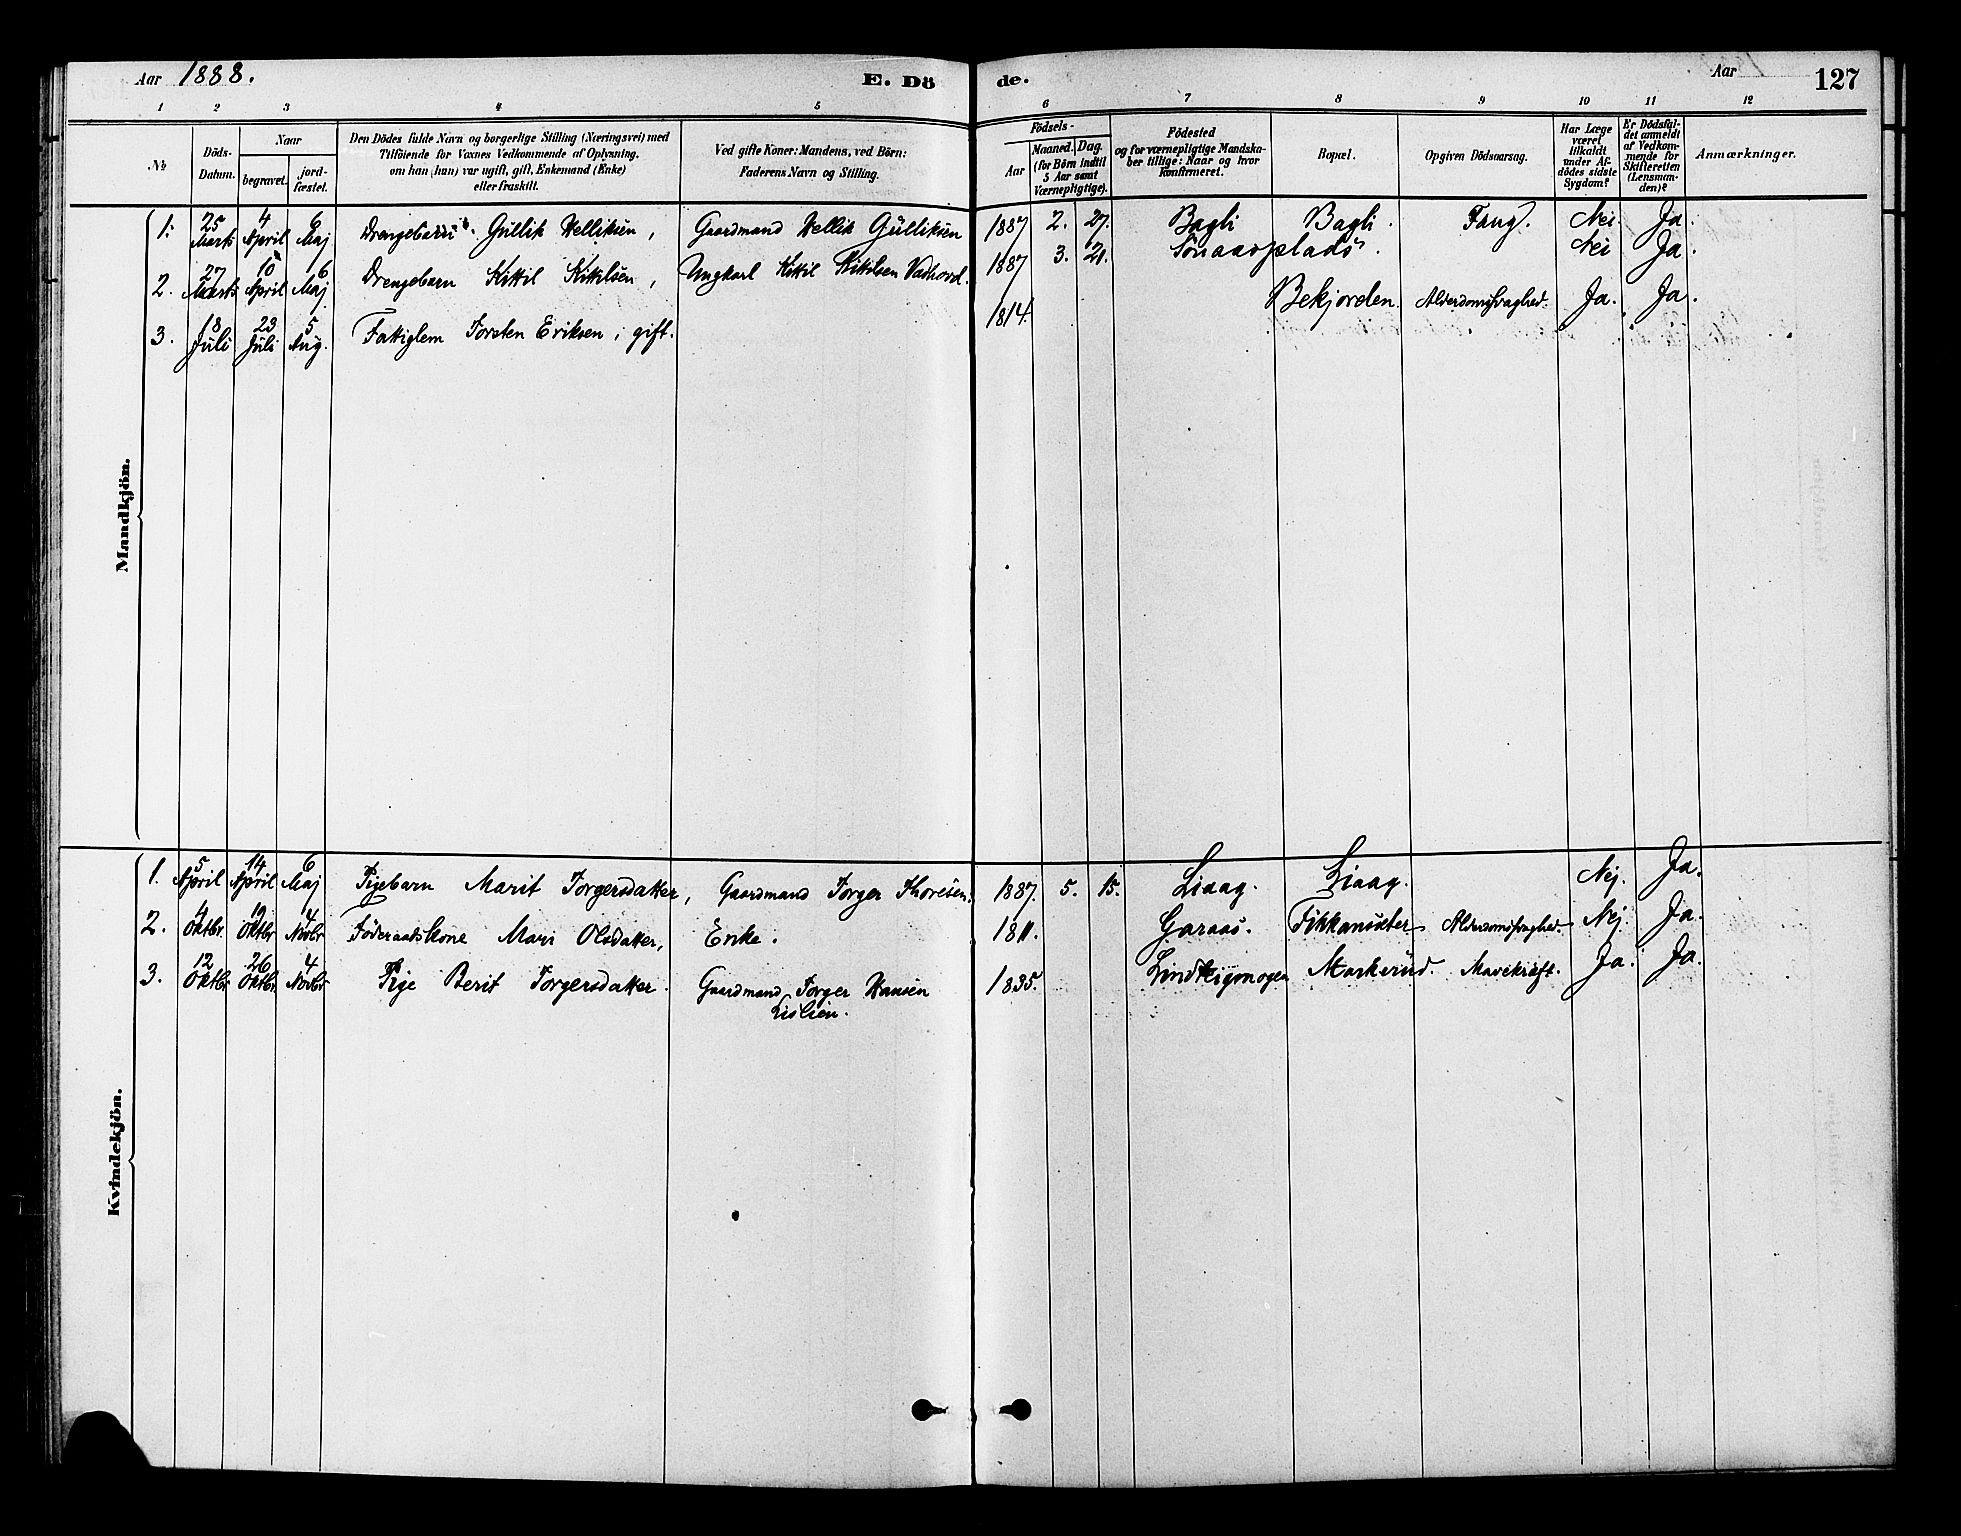 Aar 1888. E. Dö de. Aar 127
1 2 3 4 5 6 7 8 9 10 11 12
No.
Döds-Datum.
Naar
begravet.
jordfæstet.
Den Dödes fulde Navn og borgerlige Stilling (Næringsvei) med
Tilföiende for Voxnes Vedkommende af Oplysning,
om han (hun) var ugift, gift, Enkemand (Enke)
eller fraskilt.
Ved gifte Koner: Mandens, ved Börn:
Faderens Navn og Stilling.
Födsels-
Aar
Maaned. Dag.
(for Börn indtil
5 Aar samt
Værnepligtige).
Födested
og for værnepligtige Mandska-
ber tillige: Naar og hvor
Konfirmeret.
Bopæl.
Opgiven Dödsaarsag.
Har Læge
været
tilkaldt
under Af-
dödes sidste
Sygdom?
Er Dödsfal-
det anmeldt
af Vedkom-
mende for
Skifteretten
(Lensman-
den)?
Anmærkninger.
Mandkjön.
1. 25 Marts 4 April 6 Maj Drengebarn Gullik Helliksen, Gaardmand Hellik Gulliksen 1887 2. 27. Bagli Bagli. Nei Ja.
2. 27 Marts 10 April 6 Maj Drengebarn Kittil Kittilsen, Ungkarl Kittil Kittilsen 1887 3. 21. Nei Ja.
3. 18 Juli 23 Juli 5 Aug. Fattiglem Torsten Eriksen, gift. 1814. Bekjorden. Alderdomssvaghed. Ja. Ja.
Kvindekjön.
1. 5 April 14 April 6 Maj Pigebarn Marit Torgersdatter, Gaardmand Torger Thoresen. 1887. 5. 15. Liaag. Liaag. Nej. Ja.
2. 4 Oktbr. 12 Oktbr 4 Novbr Föderaadskone Mari Olsdatter, Enke. 1811. Garaas. Alderdomssvaghed. Nej Ja.
3. 12 Oktbr 26 Oktbr. 4 Novbr Pige Berit Torgersdatter. Gaardmand Torger Hansen 1835. Markerud. Mavekræft. Ja. Ja.
Lislien.